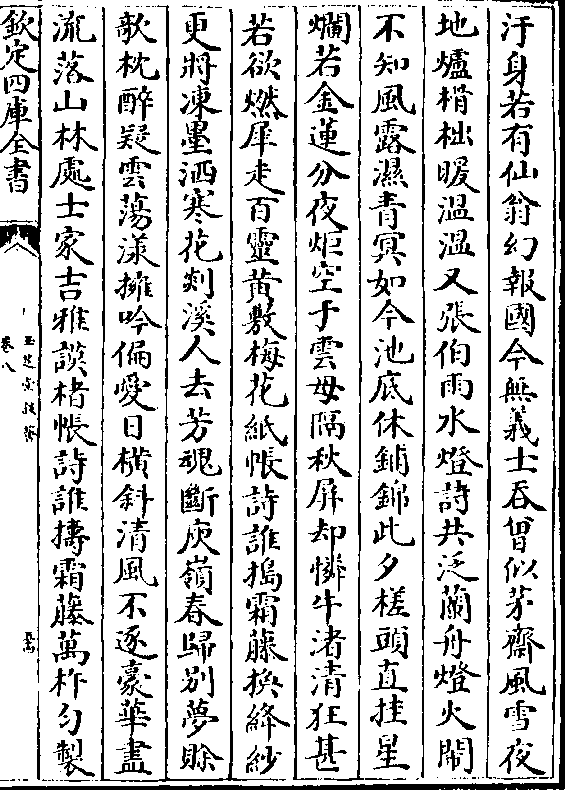 汙身若有仙翁幻報國今無義士吞曾似茅齋風雪夜
地爐榾柮暖温温又張伯雨水燈詩共泛蘭舟燈火鬧
不知風露濕青冥如今池底休鋪錦此夕槎頭直挂星
爛若金蓮分夜炬空于雲母隔秋屏却憐牛渚清狂甚
若欲燃犀走百靈黄敷梅花紙帳詩誰搗霜藤換絳紗
更將凍墨洒寒花剡溪人去芳魂斷庾嶺春歸别夢賖
歌枕醉疑雲蕩漾擁吟偏愛日橫斜清風不逐豪華盡
流落山林處士家吉雅謨楮帳詩誰擣霜藤萬杵勻製
欽定四庫全書
卷八